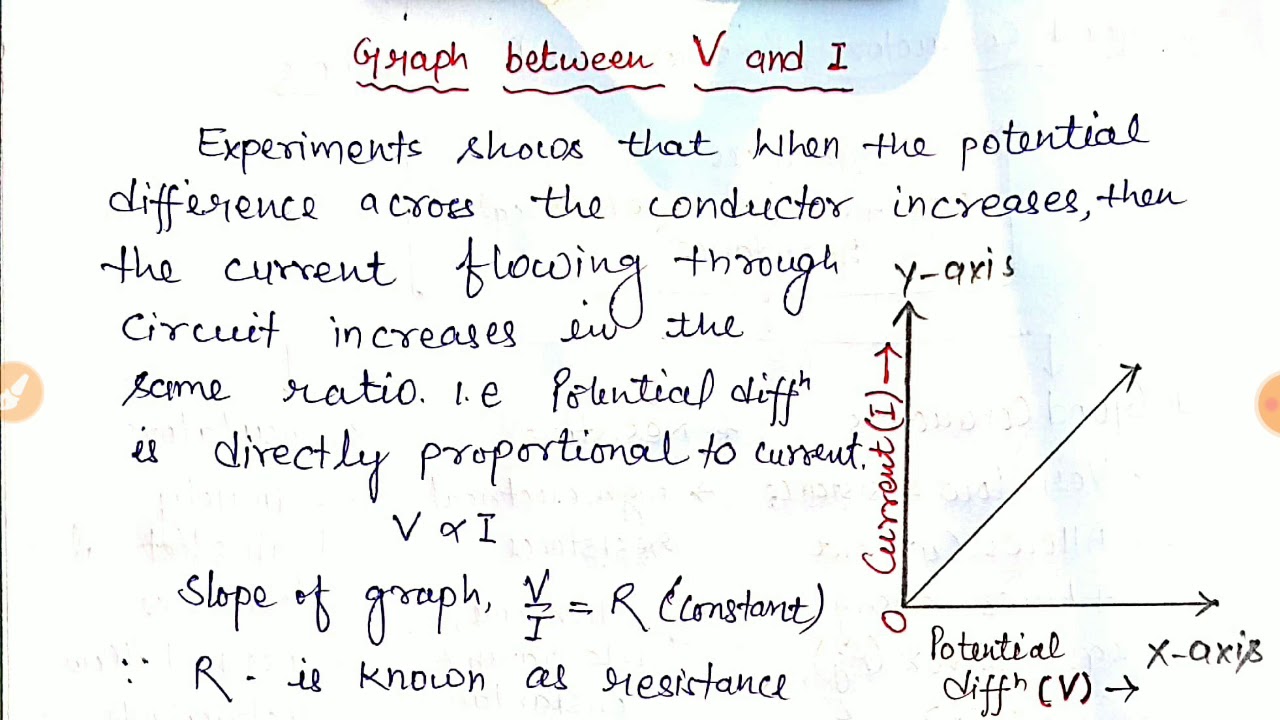 Graph between V and I
Experiments shows that when the potential
difference across the conductor increases, then
the current flowing through
circuit increases in the
same ratio. i.e Potential diffⁿ
is directly proportional to current.
V ∝ I
Slope of graph, V/I = R (constant)
∵ R - is known as resistance
Y-axis
Current (I) →
O
Potential
diffⁿ (V) →
X-axis